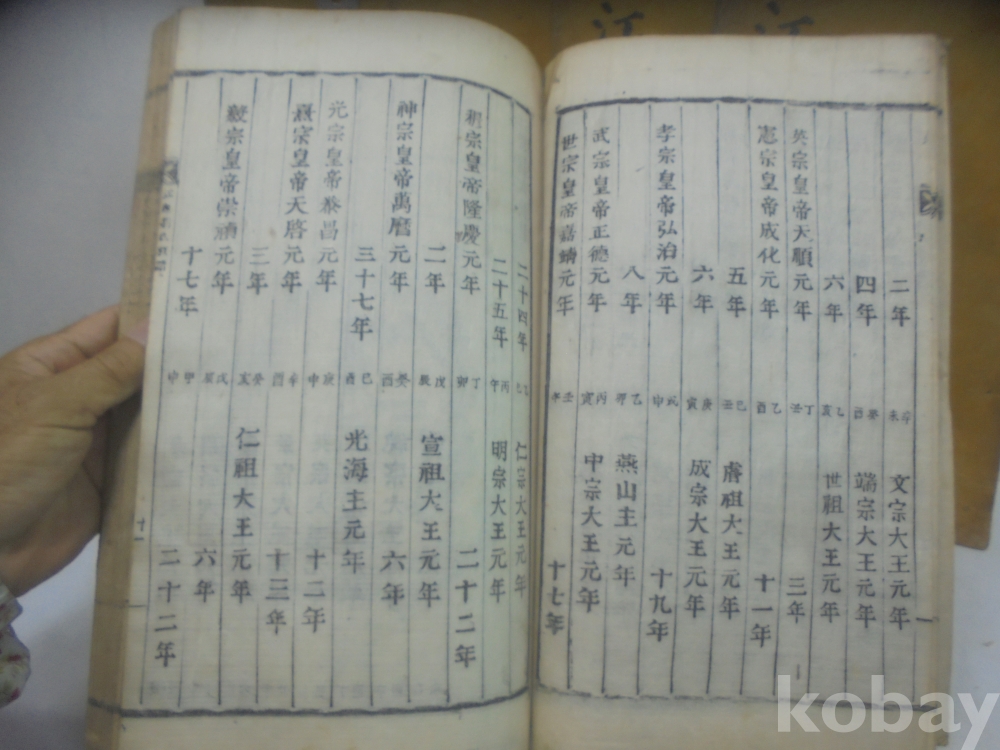 二年 辛未 文宗大王元年
四年 癸酉 端宗大王元年
六年 乙亥 世祖大王元年
英宗皇帝天順元年 丁丑 三年
憲宗皇帝成化元年 乙酉 十一年
五年 己丑 睿祖大王元年
六年 庚寅 成宗大王元年
孝宗皇帝弘治元年 戊申 十九年
八年 乙卯 燕山主元年
武宗皇帝正德元年 丙寅 中宗大王元年
世宗皇帝嘉靖元年 壬午 十七年
二十四年 乙巳 仁宗大王元年
二十五年 丙午 明宗大王元年
穆宗皇帝隆慶元年 丁卯 二十二年
二年 戊辰 宣祖大王元年
神宗皇帝萬曆元年 癸酉 六年
三十七年 己酉 光海主元年
光宗皇帝泰昌元年 庚申 十二年
熹宗皇帝天啓元年 辛酉 十三年
三年 癸亥 仁祖大王元年
毅宗皇帝崇禎元年 戊辰 六年
十七年 甲申 二十二年
十一
江
江
kobay